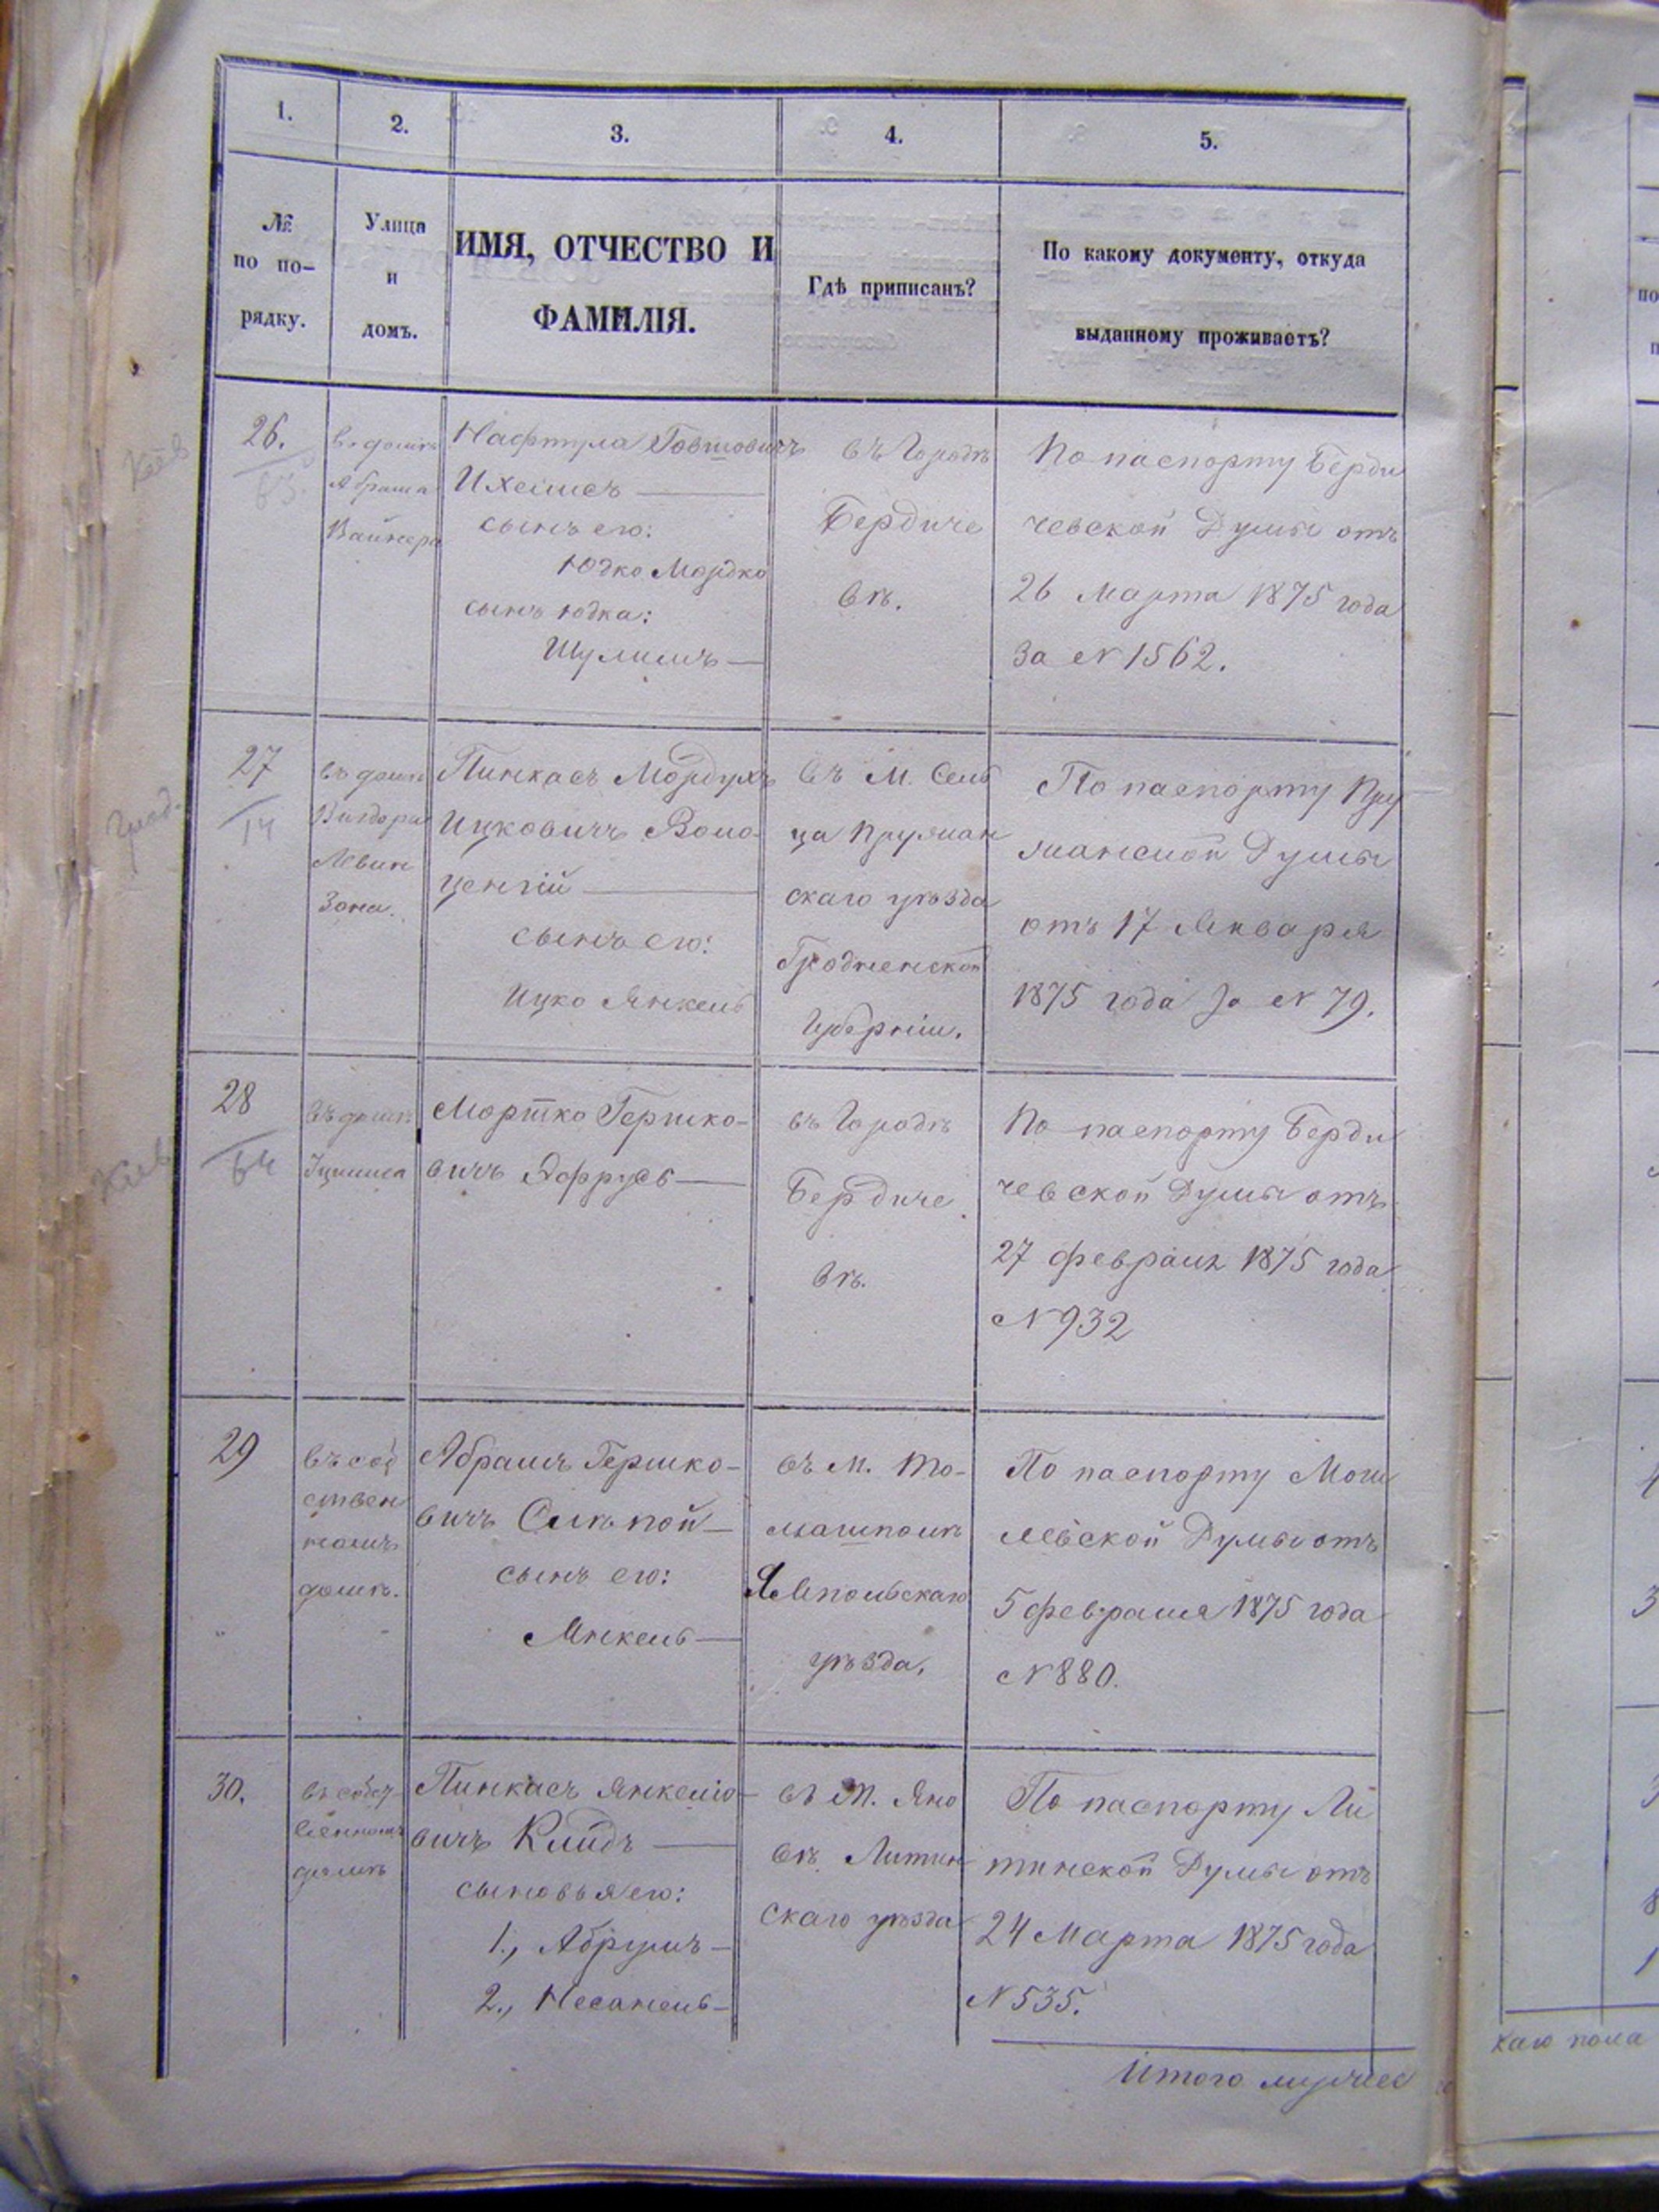 1.
2.
3.
4.
5.
№
по по-
рядку.
Улица
и
домъ.
ИМЯ, ОТЧЕСТВО И
ФАМИЛІЯ.
Гдѣ приписанъ?
По какому документу, откуда
выданному проживаетъ?
Кіев
26.
63.
въ домѣ
Абрама
Вайнера
Нафтула Говшовичъ
сынъ его:
Юдко Мордко
сынъ Юдка:
Шулимъ —
въ Городѣ
Бердиче
вѣ.
По паспорту Берди
чевской Думы отъ
26 Марта 1875 года
За № 1562.
Грод.
27
14
въ домѣ
Вигдора
Левин
Зона.
Пинкасъ Мордухъ
Ицковичъ
сынъ его:
Ицко Янкель
въ М. Сель
ца Пружан
скаго уѣзда
Гродненской
Губерніи.
По паспорту Пру
жанской Думы
отъ 17 Января
1875 года за № 79.
Кіев
28
64
въ домѣ
Мортко Гершко-
вичъ Эфрусь —
въ Городѣ
Бердиче
вѣ.
По паспорту Берди
чевской Думы отъ
27 февраля 1875 года
№ 932
29
въ соб
ствен
номъ
домѣ.
Абрамъ Гершко-
вичъ Слѣпой —
сынъ его:
Янкель —
въ М. То-
машполѣ
Ямпольскаго
уѣзда.
По паспорту Моги
левской Думы отъ
5 февраля 1875 года
№ 880.
30.
въ собст
венномъ
домѣ
Пинкасъ Янкелю-
вичъ
сыновья его:
1., Абрумъ —
2., Несанель —
въ М. Яно
вѣ Литин
скаго уѣзда
По паспорту Ли
тинской Думы отъ
24 Марта 1875 года
№ 535.
Итого мужес
каго пола